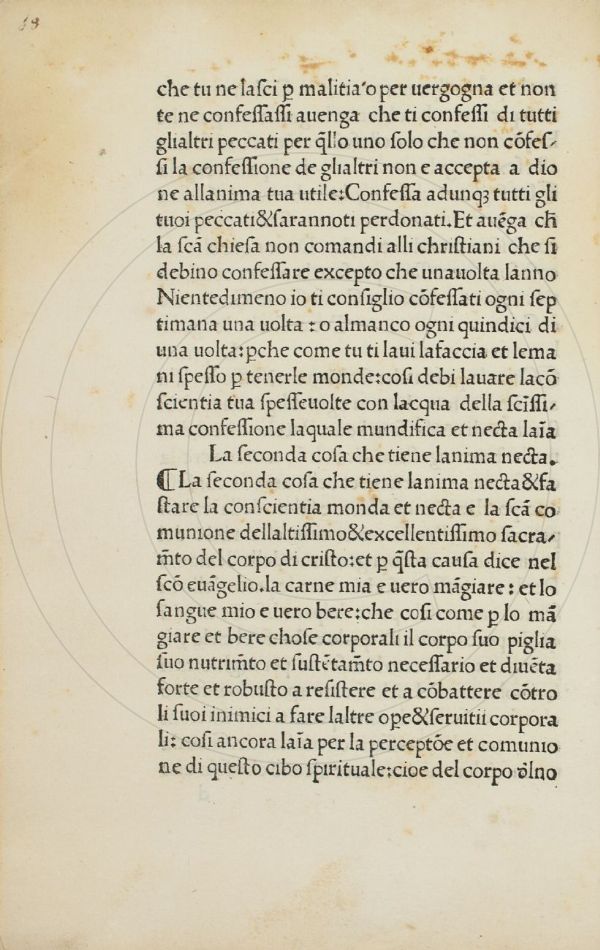 48
che tu ne laſci ꝑ malitia'o per uergogna et non
te ne confeſſaſſi auenga che ti confeſſi di tutti
glialtri peccati per q̄llo uno ſolo che non cōfeſ⸗
ſi la confeſſione de glialtri non e accepta a dio
ne allanima tua utile:Confeſſa adunqꝫ tutti gli
tuoi peccati&ſarannoti perdonati.Et auēga ch̄
la ſcā chieſa non comandi alli chriſtiani che ſi
debino confeſſare excepto che unauolta lanno
Nientedimeno io ti conſiglio cōfeſſati ogni ſep
timana una uolta : o almanco ogni quindici di
una uolta:ꝑche come tu ti laui lafaccia et lema
ni ſpeſſo ꝑ tenerle monde:coſi debi lauare lacō
ſcientia tua ſpeſſeuolte con lacqua della ſcīſſi⸗
ma confeſſione laquale mundifica et necta laīa
La ſeconda coſa che tiene lanima necta.
¶ La ſeconda coſa che tiene lanima necta&fa
ſtare la conſcientia monda et necta e la ſcā co
munione dellaltiſſimo&excellentiſſimo ſacra⸗
m̄to del corpo di criſto:et ꝑ q̄ſta cauſa dice nel
ſcō euāgelio.la carne mia e uero māgiare : et lo
ſangue mio e uero bere:che coſi come ꝑ lo mā
giare et bere choſe corporali il corpo ſuo piglia
ſuo nutrim̄to et ſuſtētam̄to neceſſario et diuēta
forte et robuſto a reſiſtere et a cōbattere cōtro
li ſuoi inimici a fare laltre oꝑe&ſeruitii corpora
li: coſi ancora laīa per la perceptōe et comunio
ne di queſto cibo ſpirituale:cioe del corpo v̄lno